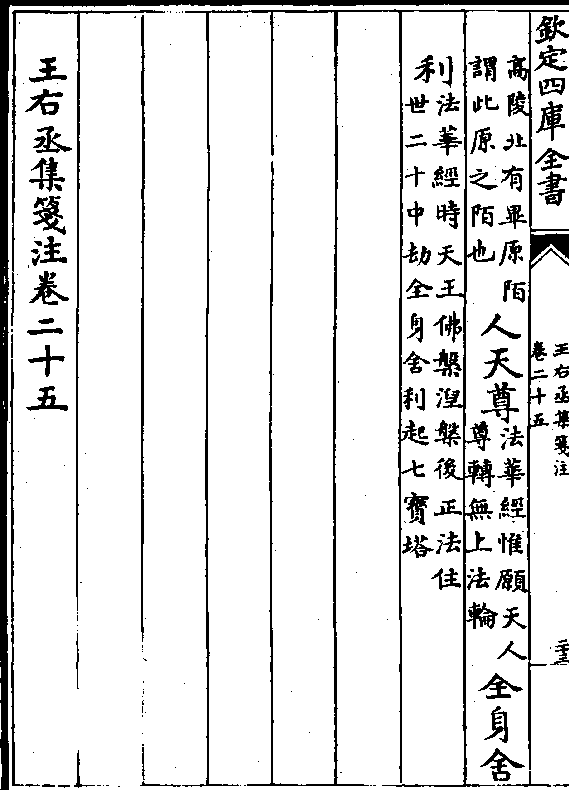 欽定四庫全書
王右丞集箋注
卷二十五
二十三
高陵北有畢原陌
謂此原之陌也
人天尊
法華經惟願天人
尊轉無上法輪
全身舍
利
法華經時天王佛槃涅槃後正法住
世二十中劫全身舍利起七寶塔
王右丞集箋注卷二十五